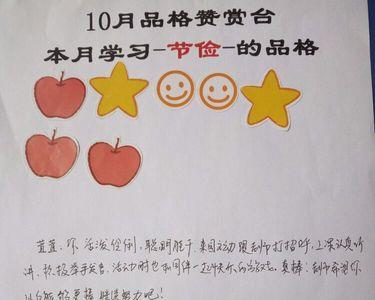 10月品格赞赏台
本月学习-节俭-的品格
蓝蓝,你活泼伶俐,聪明能干,来园主动跟老师打招呼,上课认真听
讲,积极举手发言,活动时也和同伴一起快乐的游戏。真棒!老师希望你
继续努力吧!